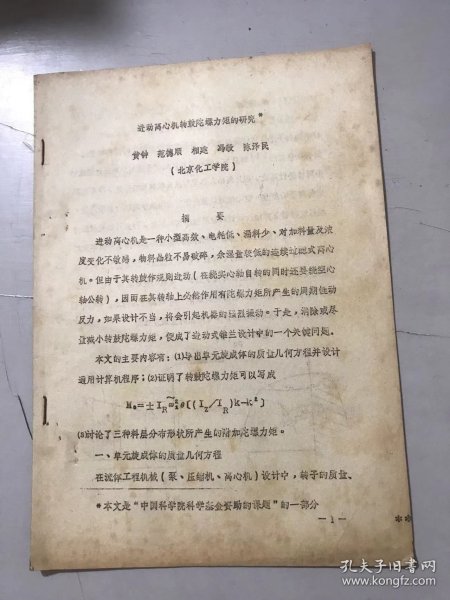 进动离心机转鼓陀螺力矩的研究*
黄钟 范德顺 相建 冯敏 陈泽民
（北京化工学院）
摘 要
进动离心机是一种小型高效、电耗低、漏料少、对加料量及浓
度变化不敏感，物料晶粒不易破碎，余湿量较低的连续过滤式离心
机。但由于其转鼓作规则进动（在绕实心轴自转的同时还要绕空心
轴公转），因而在其转轴上必然作用有陀螺力矩所产生的周期性动
反力，如果设计不当，将会引起机器的强烈振动。于是，消除或尽
量减小转鼓陀螺力矩，便成了进动式锥兰设计中的一个关键问题。
本文的主要内容有：(1)导出单元旋成体的质量几何方程并设计
通用计算机程序；(2)证明了转鼓陀螺力矩可以写成
(3)讨论了三种料层分布形状所产生的附加陀螺力矩。
一、单元旋成体的质量几何方程
在流体工程机械（泵、压缩机、离心机）设计中，转子的质量、
*本文是“中国科学院科学基金资助的课题”的一部分
—1—
**
孔夫子旧书网
www.kongfz.com